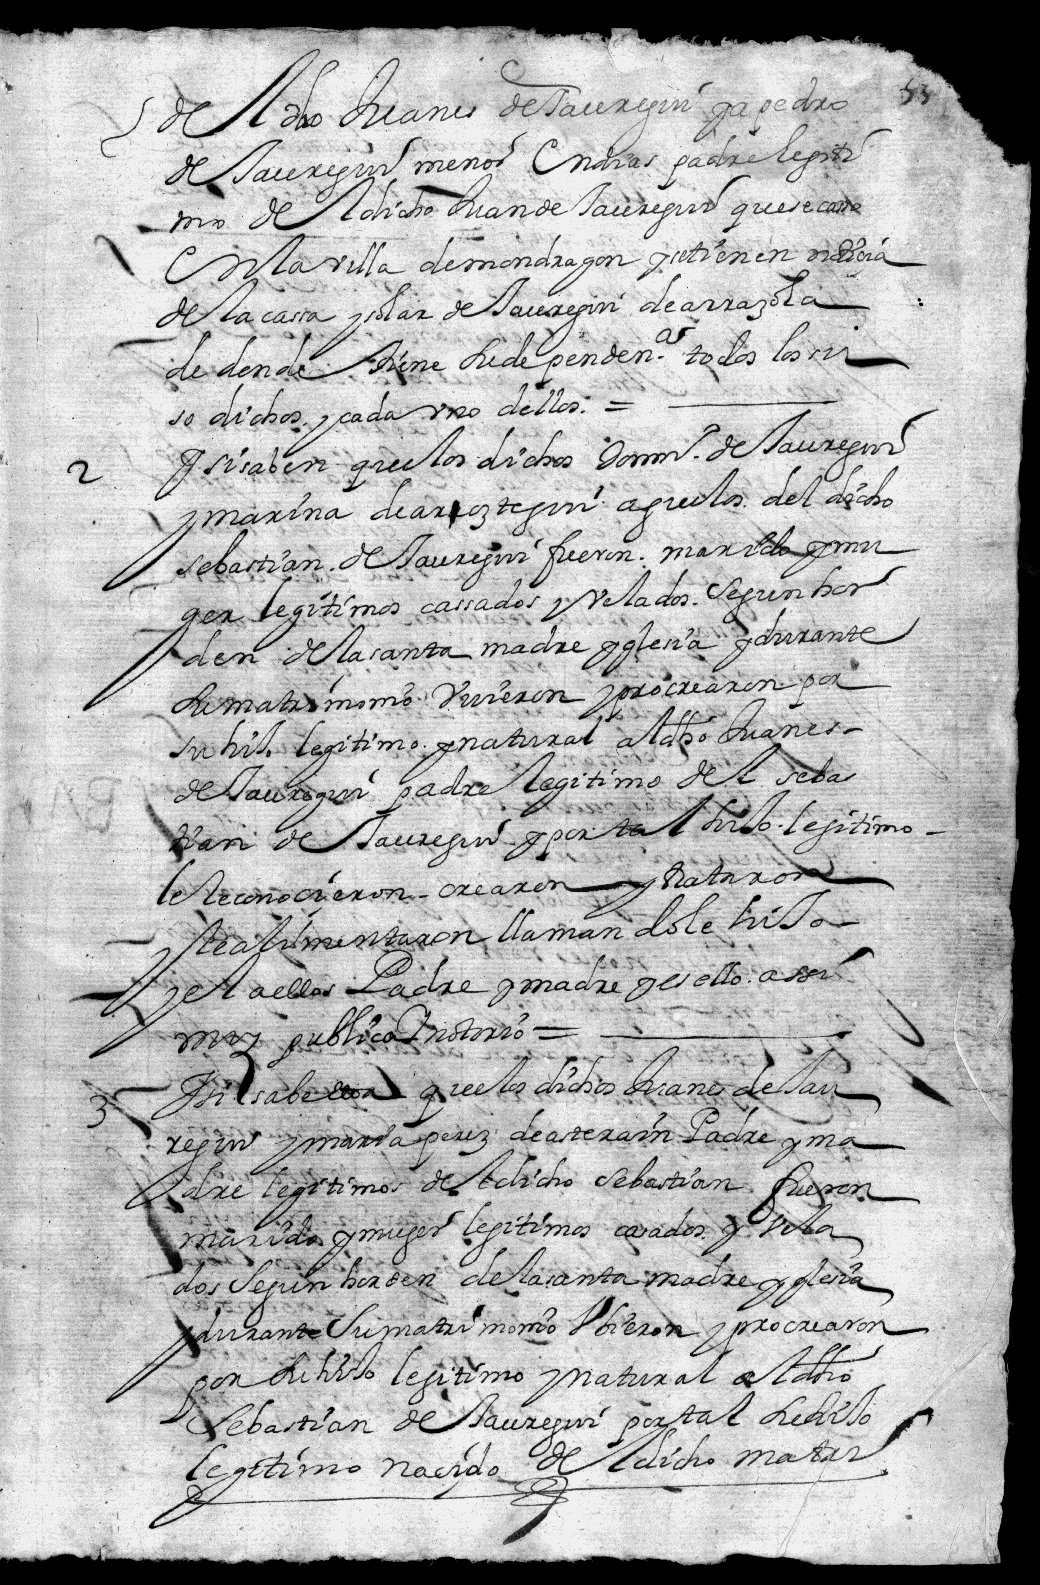 53
del dho Juanes de Jauregui y a pedro
de Jauregui menor en dias padre legiti
mo del dicho Juan de Jauregui que se casso
En la villa de mondragon y se tienen noticia
de la cassa y solar de Jauregui de arrazola
de dende biene su dependen.ª todos los su
so dichos y cada vno dellos. =
2 Y si saben que los dichos Domin.º de Jauregui
y marina de aroztegui aguelos del dicho
sebastian de Jauregui fueron marido y mu
ger legitimos cassados y velados segun hor
den de la santa madre yglesia y durante
su matrimonio Vuieron y procrearon por
su hijo legitimo y natural al dho Juanes
de Jauregui padre legitimo del sebas
tian de Jauregui y por tal hijo legitimo
le Reconocieron crearon y trataron
y le alimentaron llamandole hijo
y el a ellos Padre y madre y es ello assi
muy publico E notorio =
3 Y si saben que los dichos Juanes de Jau
regui y maria perez de asterain Padre y ma
dre legitimos del dicho Sebastian fueron
marido y muger legitimos casados y vela
dos Segun horden de la santa madre yglesia
y durante Su matrimonio Vbieron y procrearon
por su hijo legitimo y natural al dho
Sebastian de Jauregui por tal su hijo
legitimo nacido del dicho matri